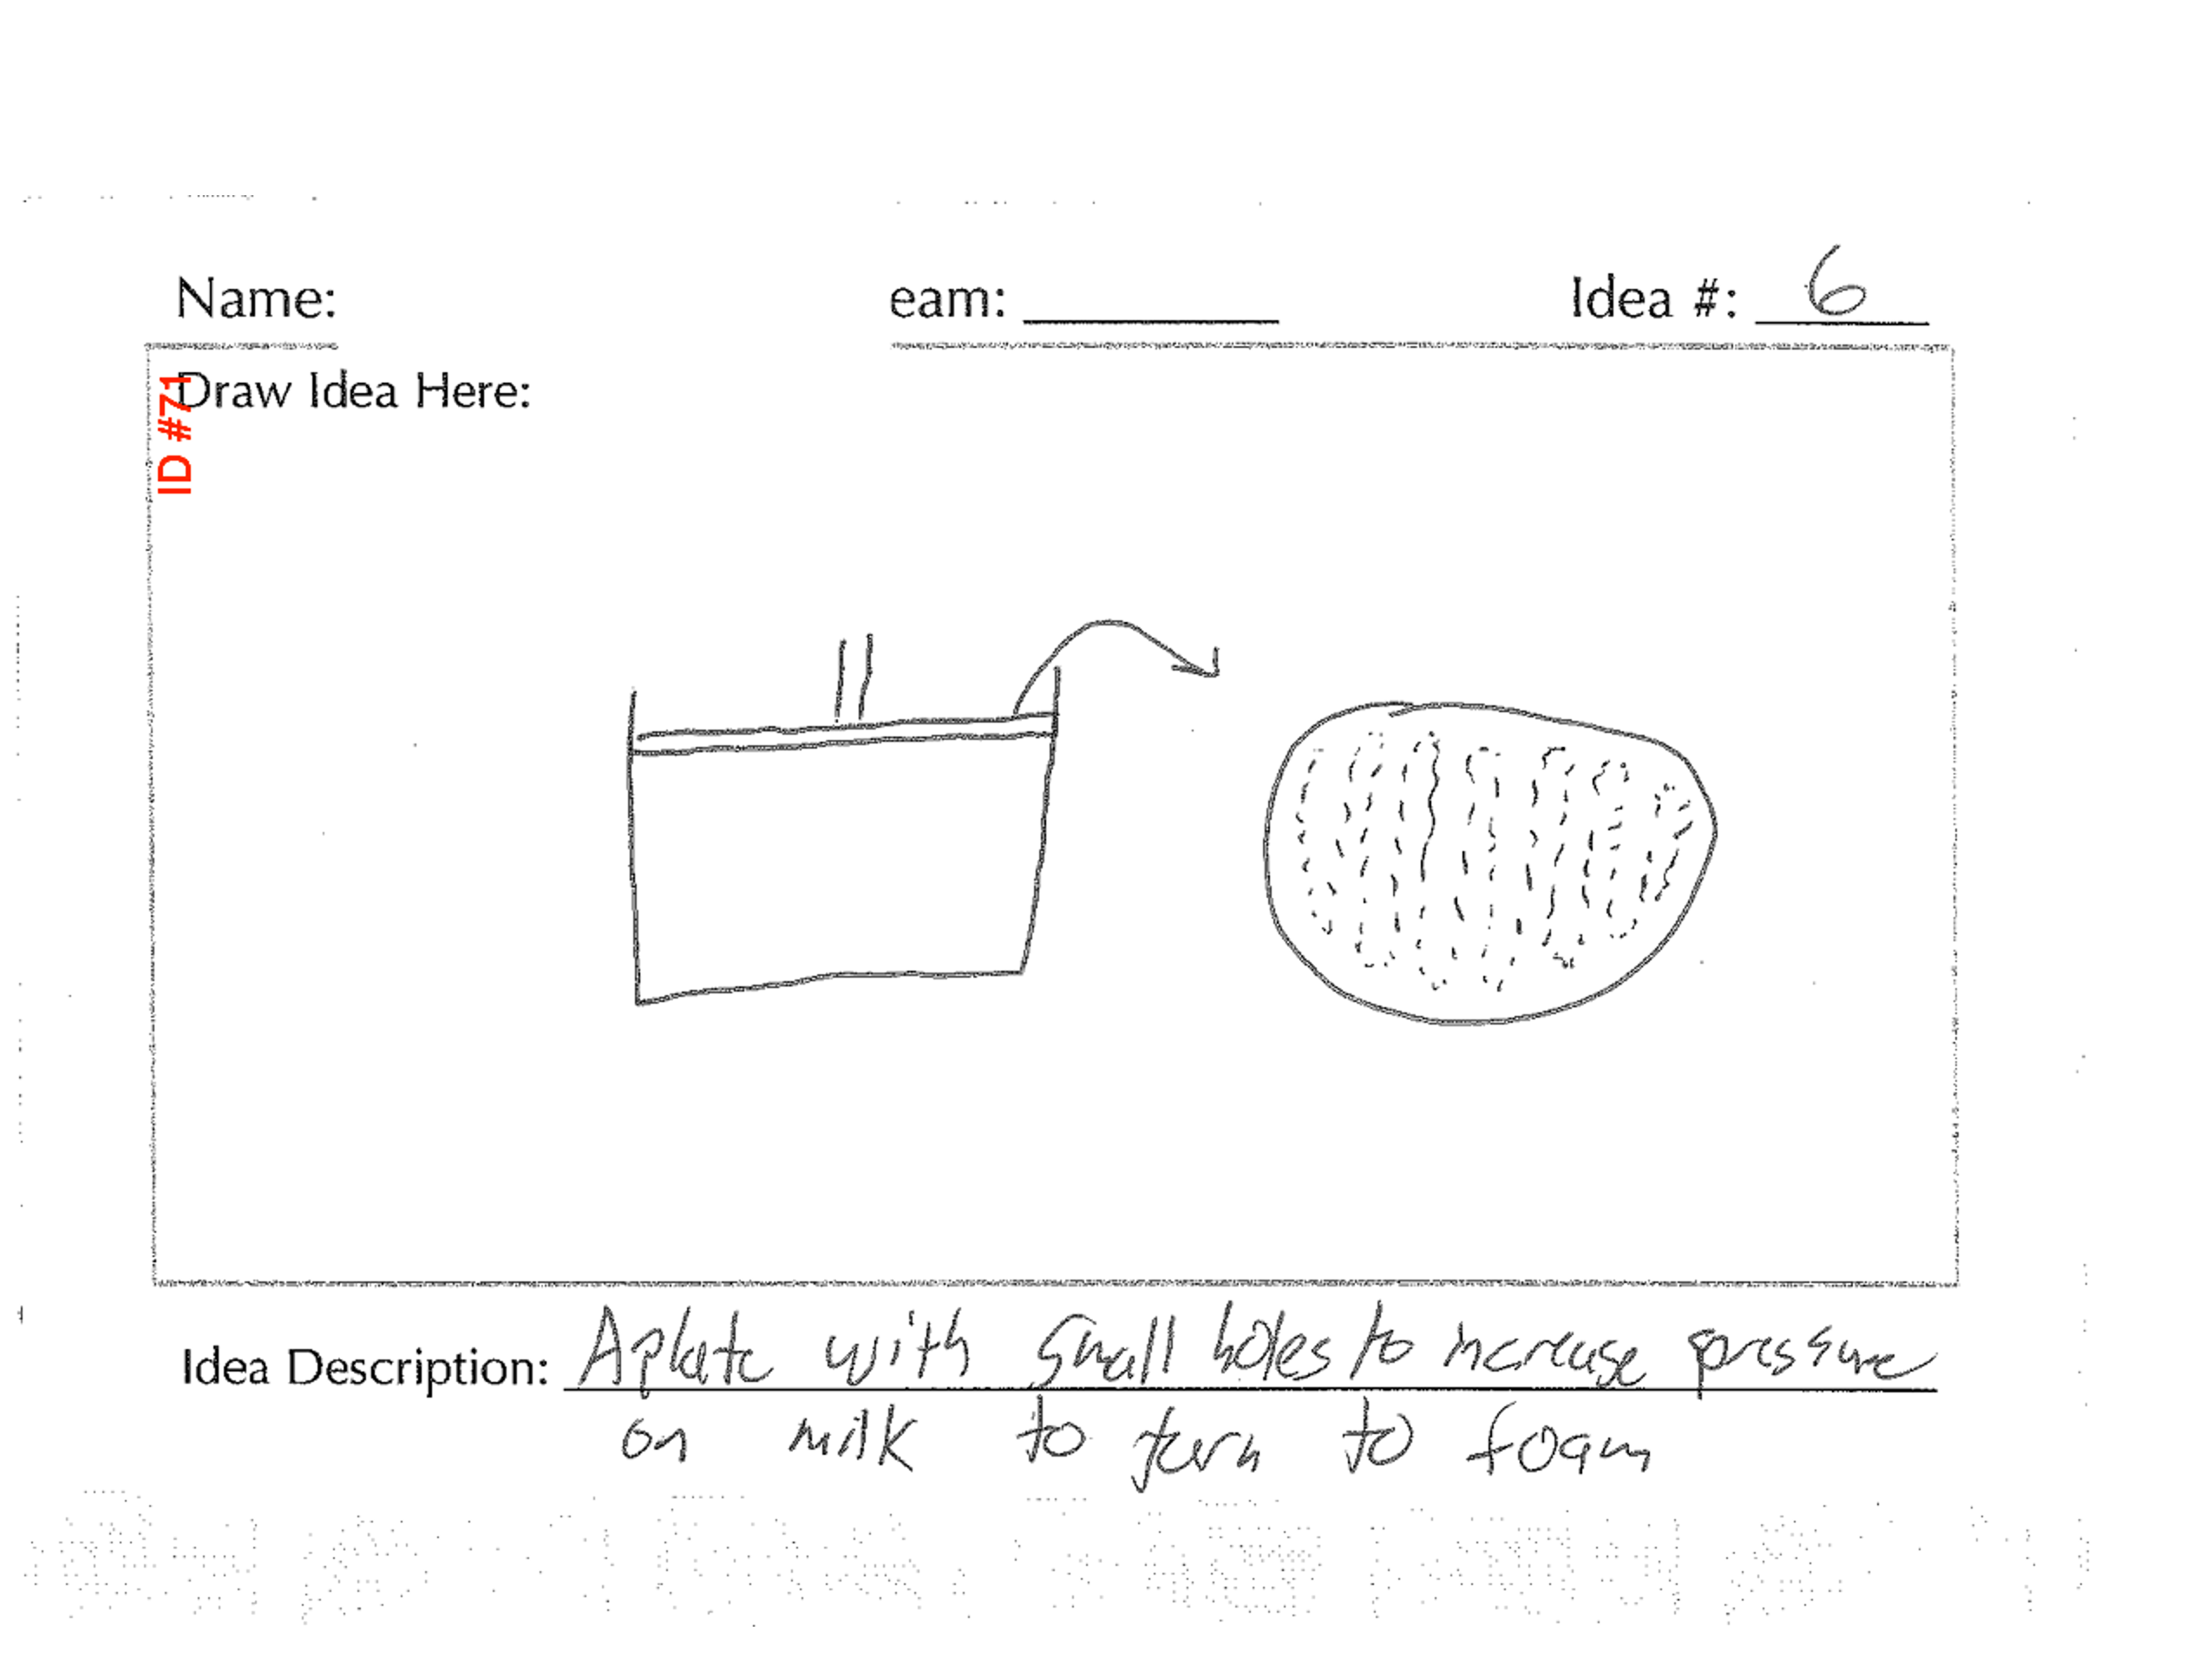 Name: eam: Idea #: 6
Draw Idea Here:
ID #71
Idea Description: A plate with small holes to increase pressure
on milk to turn to foam